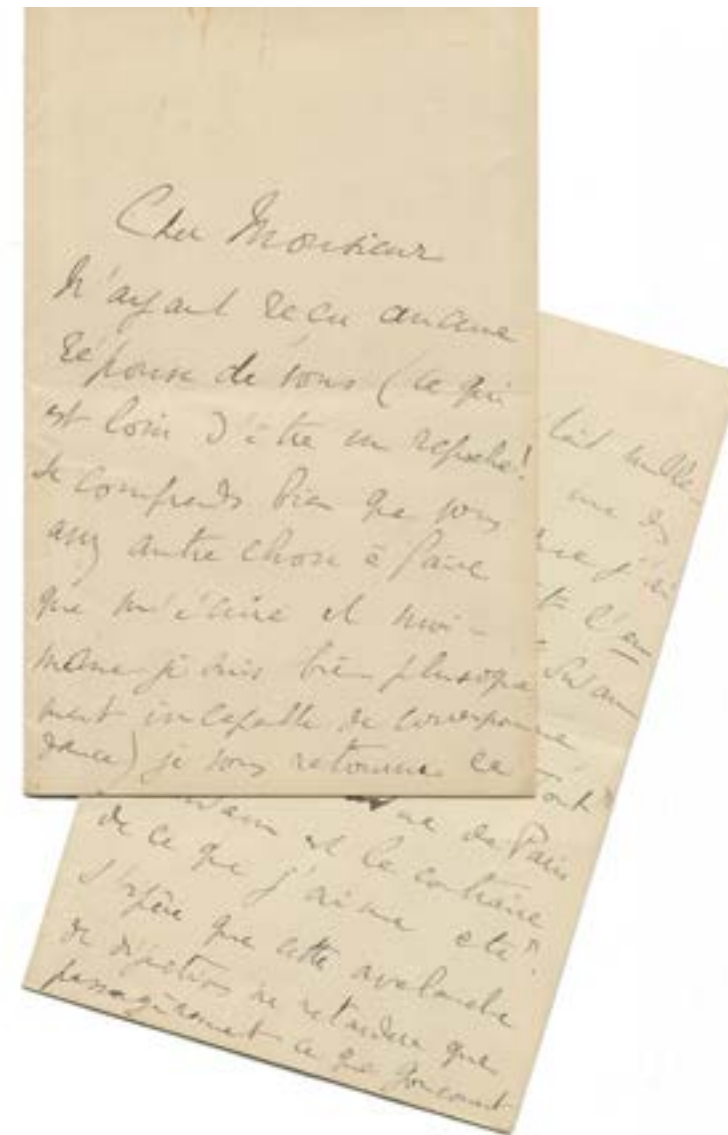 Cher Monsieur
N'ayant reçu aucune
réponse de vous (ce qui
est loin d'être un reproche!
Je comprends bien que vous
avez autre chose à faire
que m'écrire et moi-
même je suis bien
ment incapable de correspon-
dance) je vous retourne ce
j'ai
Swann
de Paris
Swann est le contraire
de ce que j'aime etc".
J'espère que cette avalanche
de ne retardera que
passagèrement ce que Goncourt